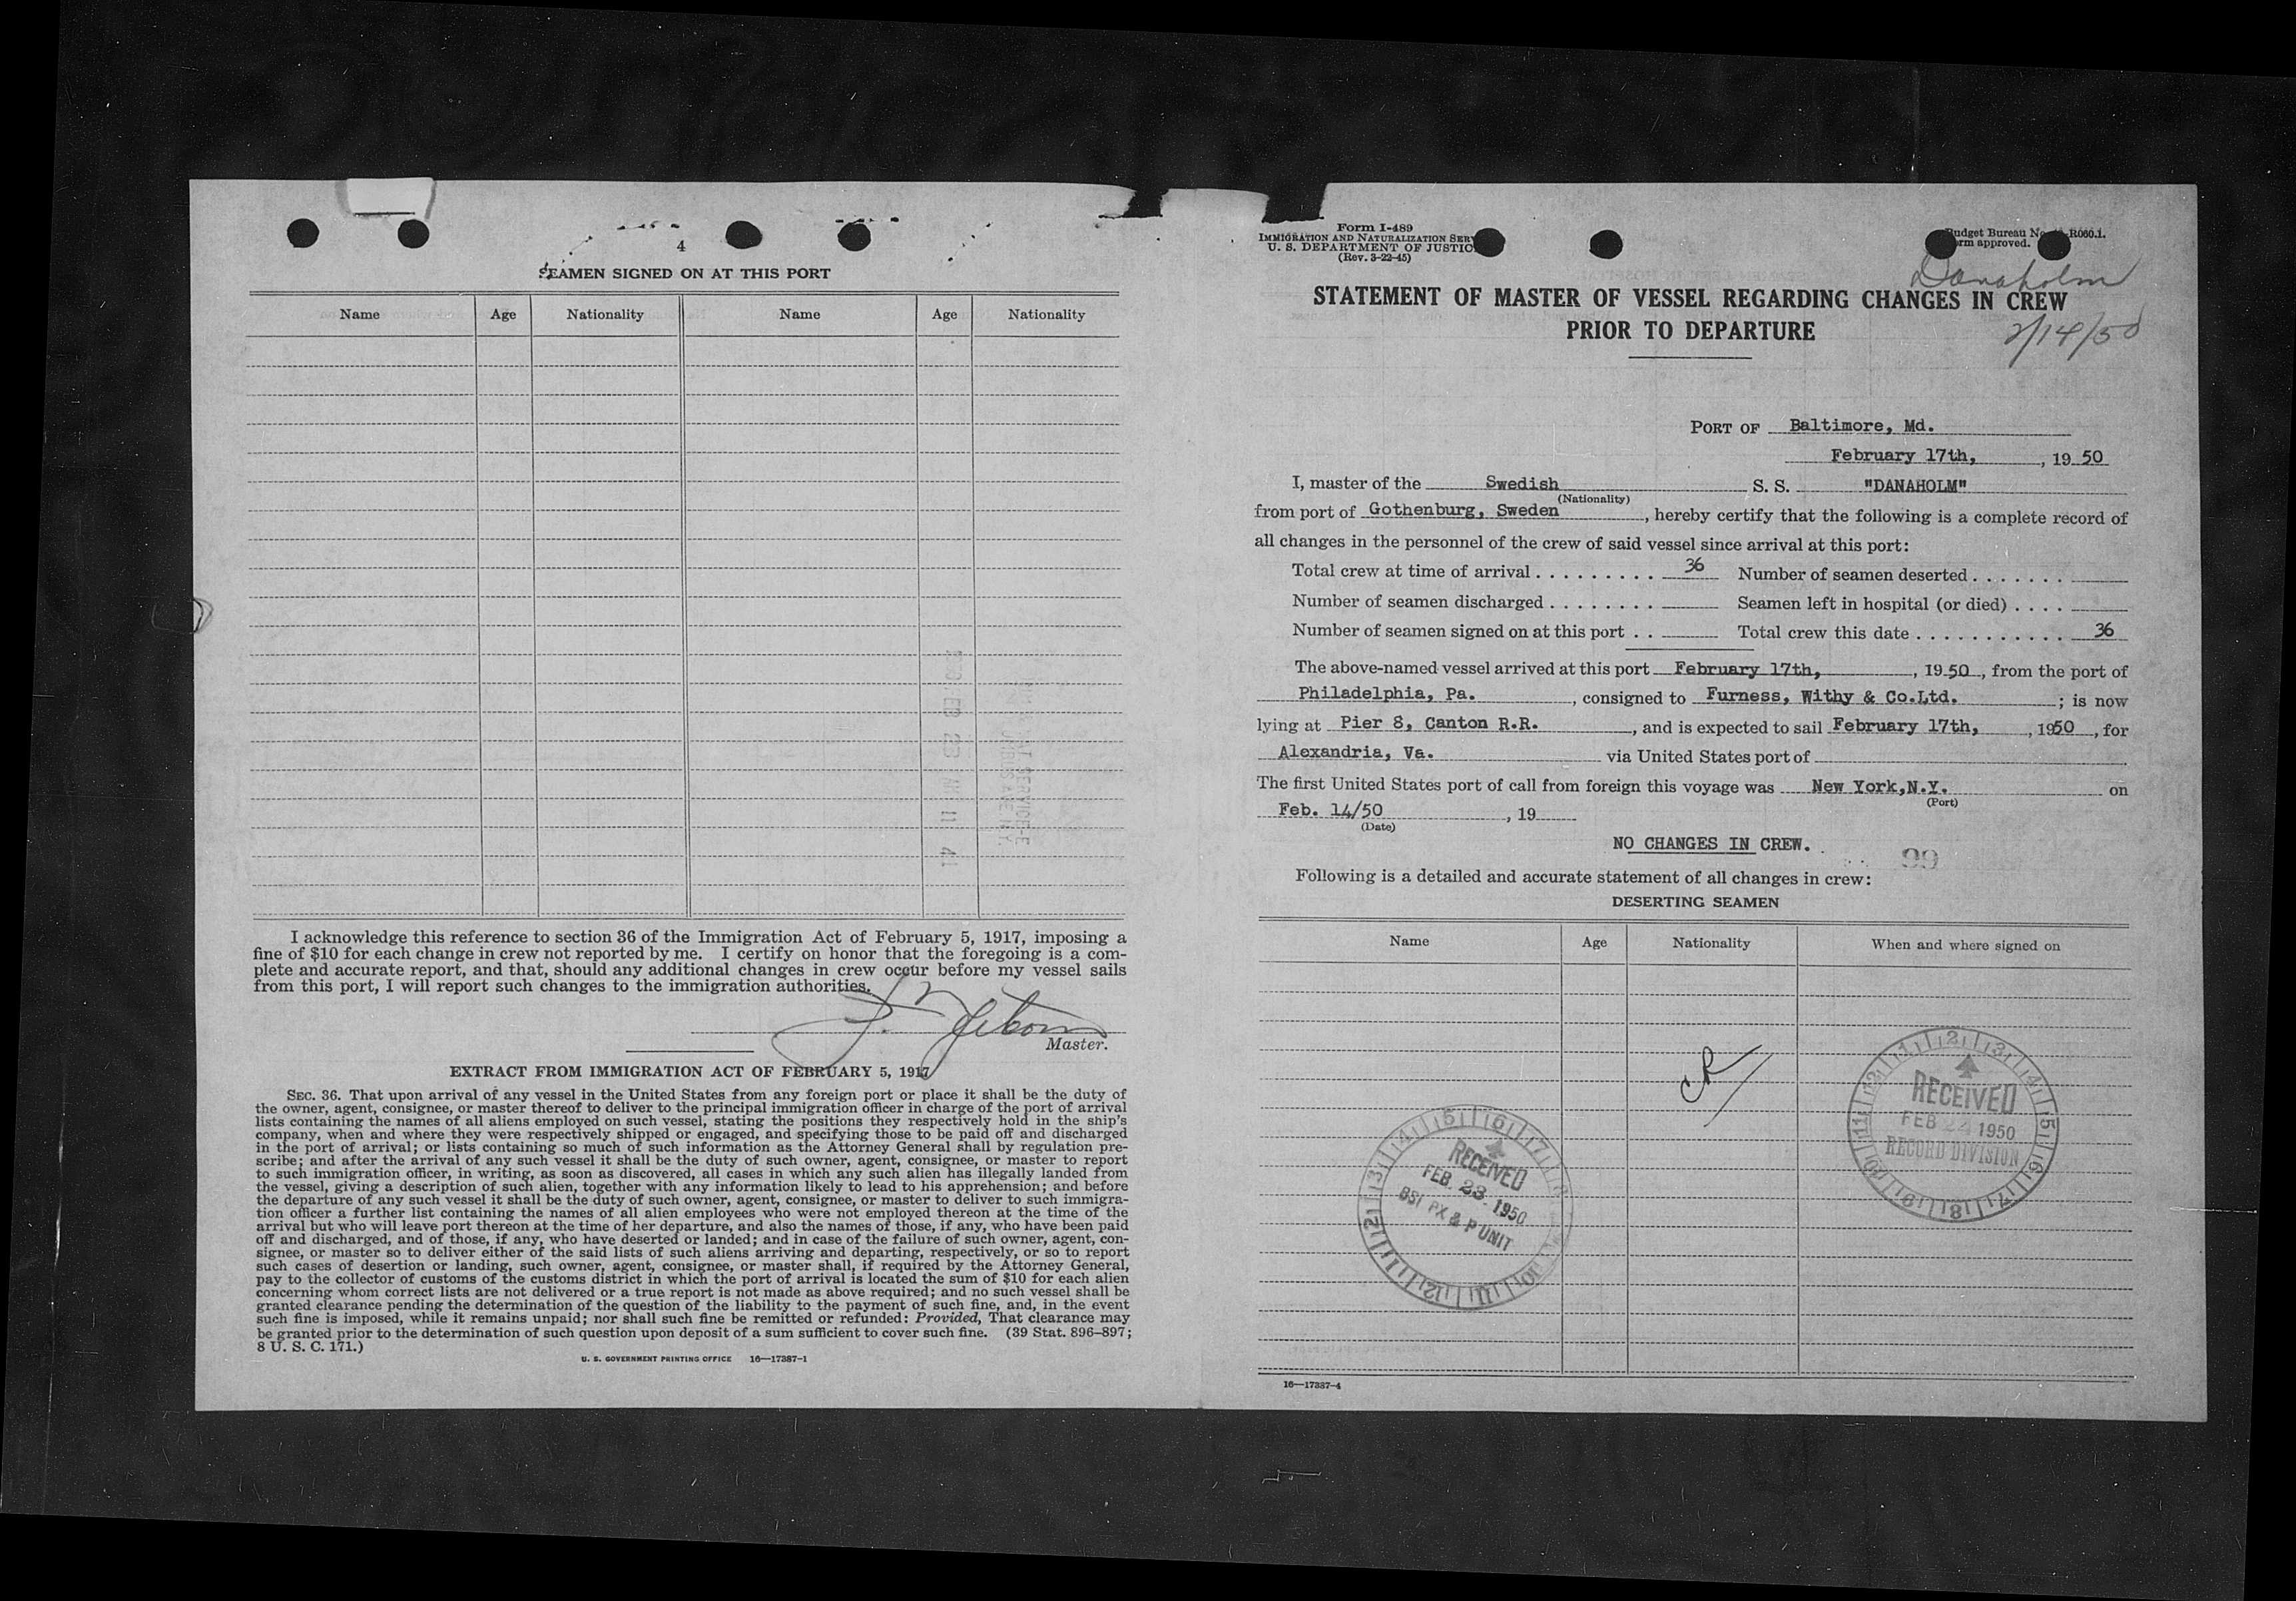 4
SEAMEN SIGNED ON AT THIS PORT
Name Age Nationality Name Age Nationality
I acknowledge this reference to section 36 of the Immigration Act of February 5, 1917, imposing a
fine of $10 for each change in crew not reported by me. I certify on honor that the foregoing is a com-
plete and accurate report, and that, should any additional changes in crew occur before my vessel sails
from this port, I will report such changes to the immigration authorities.
Master.
EXTRACT FROM IMMIGRATION ACT OF FEBRUARY 5, 1917
SEC. 36. That upon arrival of any vessel in the United States from any foreign port or place it shall be the duty of
the owner, agent, consignee, or master thereof to deliver to the principal immigration officer in charge of the port of arrival
lists containing the names of all aliens employed on such vessel, stating the positions they respectively hold in the ship's
company, when and where they were respectively shipped or engaged, and specifying those to be paid off and discharged
in the port of arrival; or lists containing so much of such information as the Attorney General shall by regulation pre-
scribe; and after the arrival of any such vessel it shall be the duty of such owner, agent, consignee, or master to report
to such immigration officer, in writing, as soon as discovered, all cases in which any such alien has illegally landed from
the vessel, giving a description of such alien, together with any information likely to lead to his apprehension; and before
the departure of any such vessel it shall be the duty of such owner, agent, consignee, or master to deliver to such immigra-
tion officer a further list containing the names of all alien employees who were not employed thereon at the time of the
arrival but who will leave port thereon at the time of her departure, and also the names of those, if any, who have been paid
off and discharged, and of those, if any, who have deserted or landed; and in case of the failure of such owner, agent, con-
signee, or master so to deliver either of the said lists of such aliens arriving and departing, respectively, or so to report
such cases of desertion or landing, such owner, agent, consignee, or master shall, if required by the Attorney General,
pay to the collector of customs of the customs district in which the port of arrival is located the sum of $10 for each alien
concerning whom correct lists are not delivered or a true report is not made as above required; and no such vessel shall be
granted clearance pending the determination of the question of the liability to the payment of such fine, and, in the event
such fine is imposed, while it remains unpaid; nor shall such fine be remitted or refunded: Provided, That clearance may
be granted prior to the determination of such question upon deposit of a sum sufficient to cover such fine. (39 Stat. 896–897;
8 U. S. C. 171.)
U. S. GOVERNMENT PRINTING OFFICE 16—17387-1
Form I-489
IMMIGRATION AND NATURALIZATION SER
U. S. DEPARTMENT OF JUSTIC
(Rev. 3-22-45)
udget Bureau No. -R060.1.
rm approved.
Danaholm
STATEMENT OF MASTER OF VESSEL REGARDING CHANGES IN CREW
PRIOR TO DEPARTURE
2/14/50
PORT OF Baltimore, Md.
February 17th, , 19 50
I, master of the Swedish S. S. "DANAHOLM"
(Nationality)
from port of Gothenburg, Sweden , hereby certify that the following is a complete record of
all changes in the personnel of the crew of said vessel since arrival at this port:
Total crew at time of arrival . . . . . . . . . 36 Number of seamen deserted . . . . . . .
Number of seamen discharged . . . . . . . . Seamen left in hospital (or died) . . . .
Number of seamen signed on at this port . . Total crew this date . . . . . . . . . . . 36
The above-named vessel arrived at this port February 17th, , 19 50 , from the port of
Philadelphia, Pa. , consigned to Furness, Withy & Co.Ltd. ; is now
lying at Pier 8, Canton R.R. , and is expected to sail February 17th, , 1950 , for
Alexandria, Va. via United States port of
The first United States port of call from foreign this voyage was New York,N.Y. on
(Port)
Feb. 14/50 , 19
(Date)
NO CHANGES IN CREW.
99
Following is a detailed and accurate statement of all changes in crew:
DESERTING SEAMEN
Name Age Nationality When and where signed on
CR
RECEIVED
FEB 24 1950
RECORD DIVISION
RECEIVED
FEB. 23 1950
BSI PX & P UNIT
16—17387-4